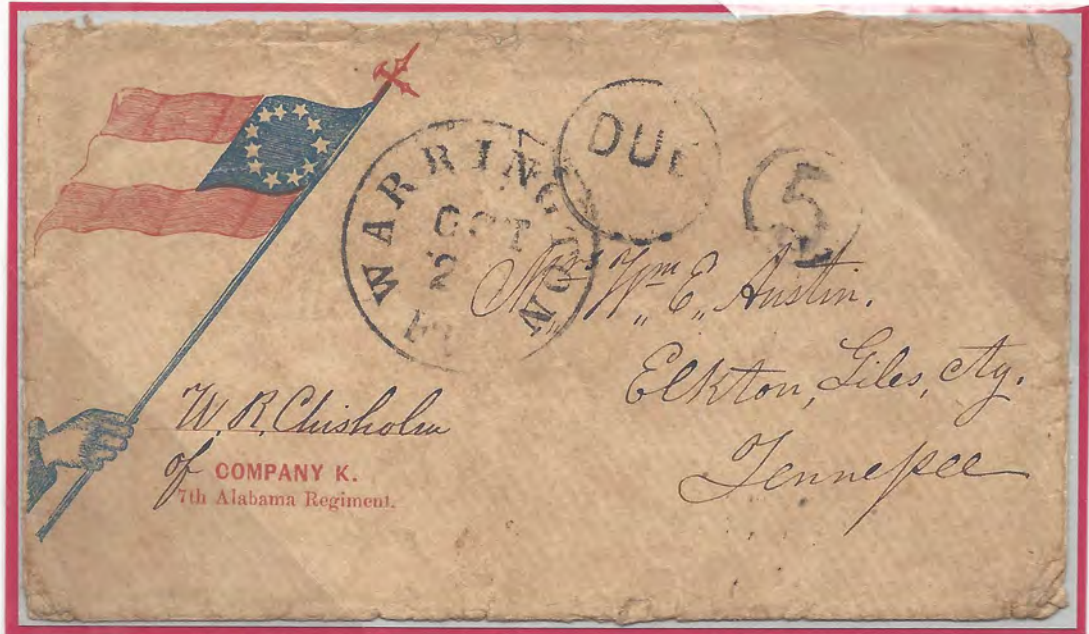 WARRINGTON
OCT
2
DUE
5
Mrs Wm E, Austin.
Elkton, Giles, Cty.
Tennessee
W. R. Chisholm
of COMPANY K.
7th Alabama Regiment.